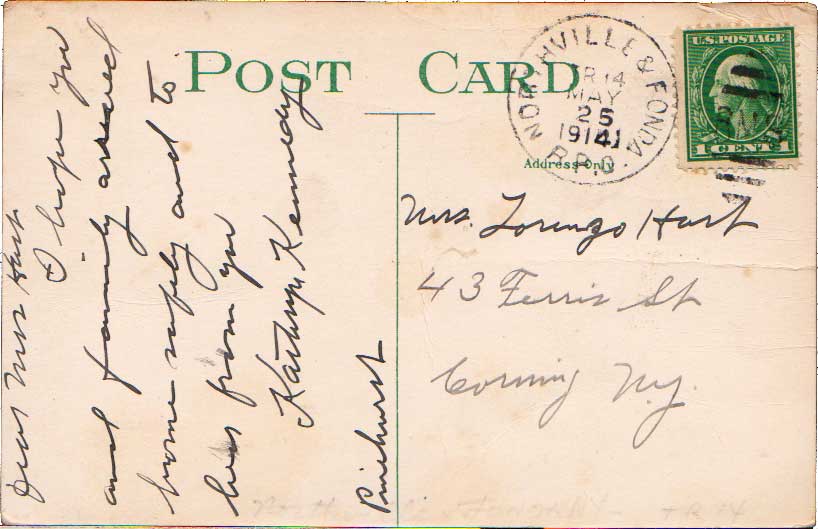 POST CARD
NORTHVILLE & FONDA
TR 14
MAY
25
1914
R.P.O.
U.S. POSTAGE
1 CENT 1
Address Only
Mrs. Lorenzo Hart
43 Ferris St
Corning N.Y.
Dear Mrs Hart
I hope you
and family arrived
home safely and to
hear from you
Kathryn Kennedy
Pinehurst
TR 14